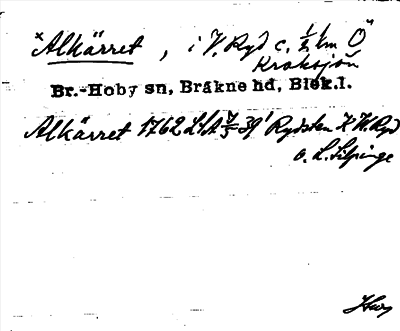 ×Alkärret, i V. Ryd c. ½ km Ö
Kroksjön
Br.-Hoby sn, Bräkne hd, Blek.l.
Alkärret 1762 LSA Rydsten X V. Ryd
o. L. Silpinge